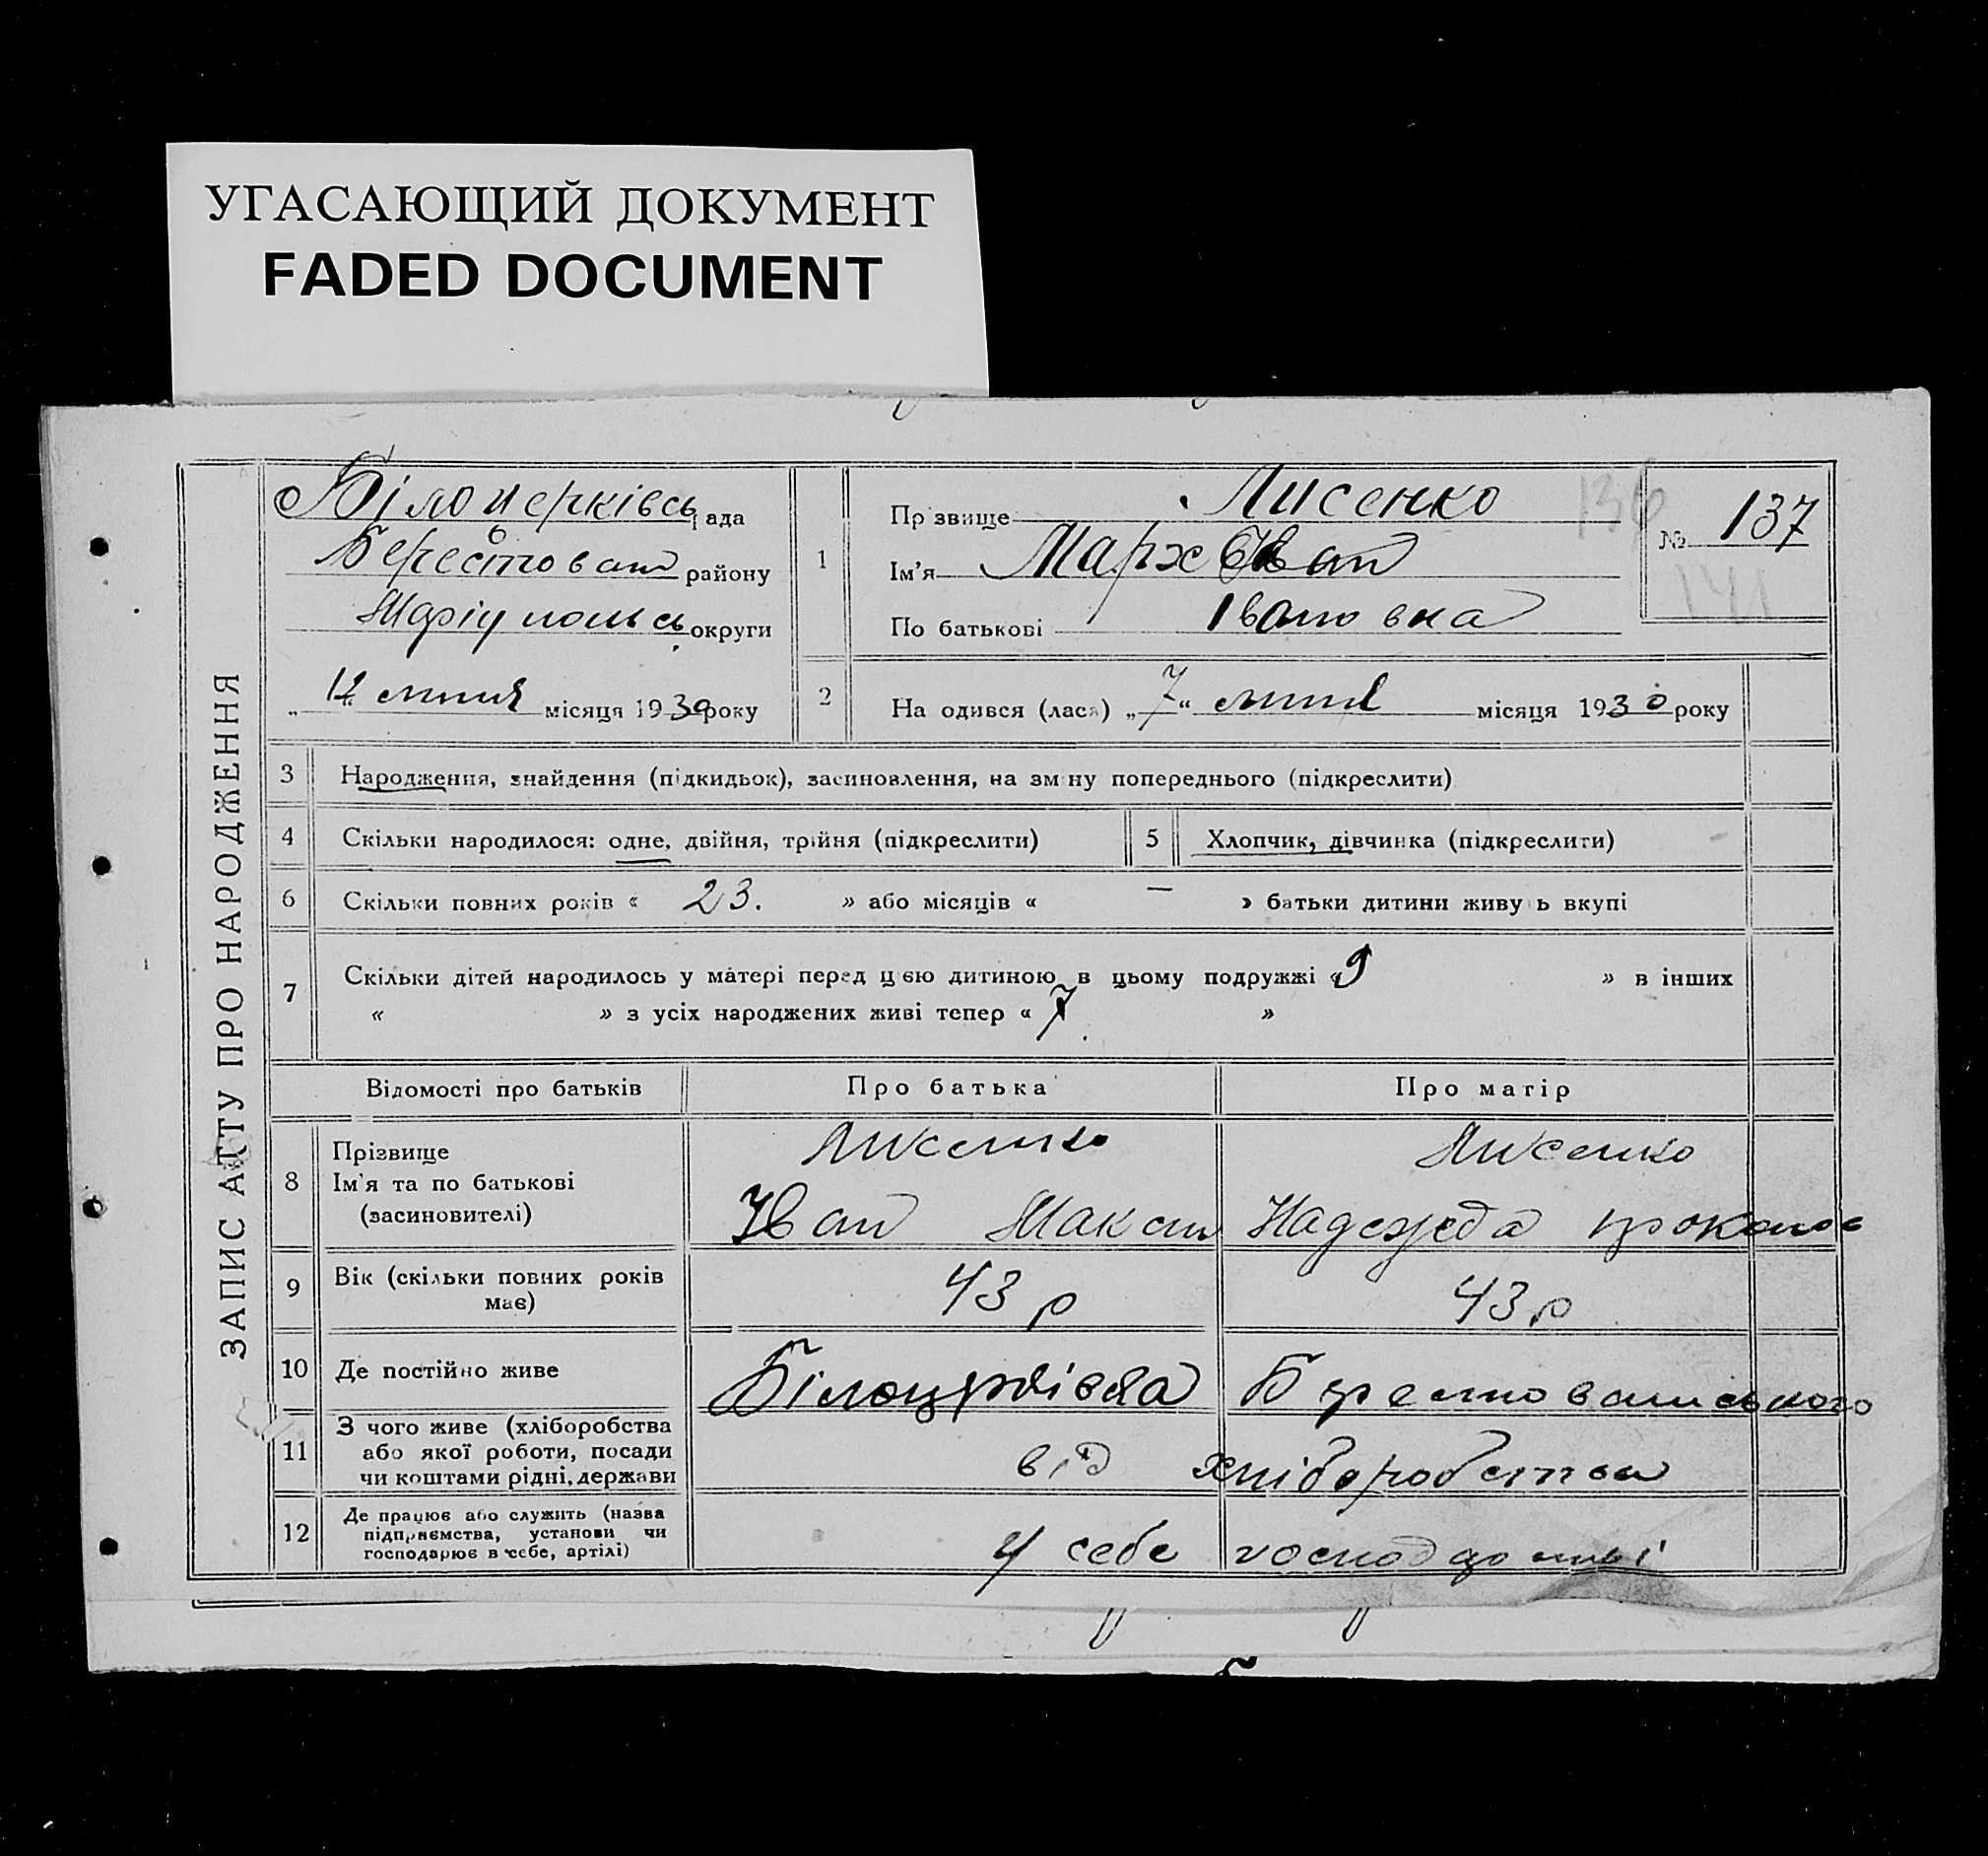 УГАСАЮЩИЙ ДОКУМЕНТ
FADED DOCUMENT
ЗАПИС АТТУ ПРО НАРОДЖЕННЯ
Білоцерківсь ада
Берестован району
Маріупольсь округи
„ 12 “ липня місяця 1930 року
1
Пр звище Лисенко
Ім'я Иван
По батькові Івановна
136
№ 137
141
2
На одився (лася) „ 7 “ липня місяця 1930 року
3 Народження, знайдення (підкидьок), засиновлення, на зм ну попереднього (підкреслити)
4 Скільки народилося: одне, двійня, трійня (підкреслити)
5 Хлопчик, дівчинка (підкреслити)
6 Скільки повних років « 23. » або місяців « — » батьки дитини живу ь вкупі
7 Скільки дітей народилось у матері перед цією дитиною в цьому подружжі « 9 » в інших
« » з усіх народжених живі тепер « 7 »
Відомості про батьків Про батька Про матір
8 Прізвище
Ім'я та по батькові
(засиновителі)
Лисенко
Иван Максим
Лисенко
Надежда Прокопов
9 Вік (скільки повних років
має)
43 р
43 р
10 Де постійно живе
Білоцерківка Берестованського
11 З чого живе (хліборобства
або якої роботи, посади
чи коштами рідні, держави
від хліборобства
12 Де працює або служить (назва
підприємства, установи чи
господарює в себе, артілі)
У себе